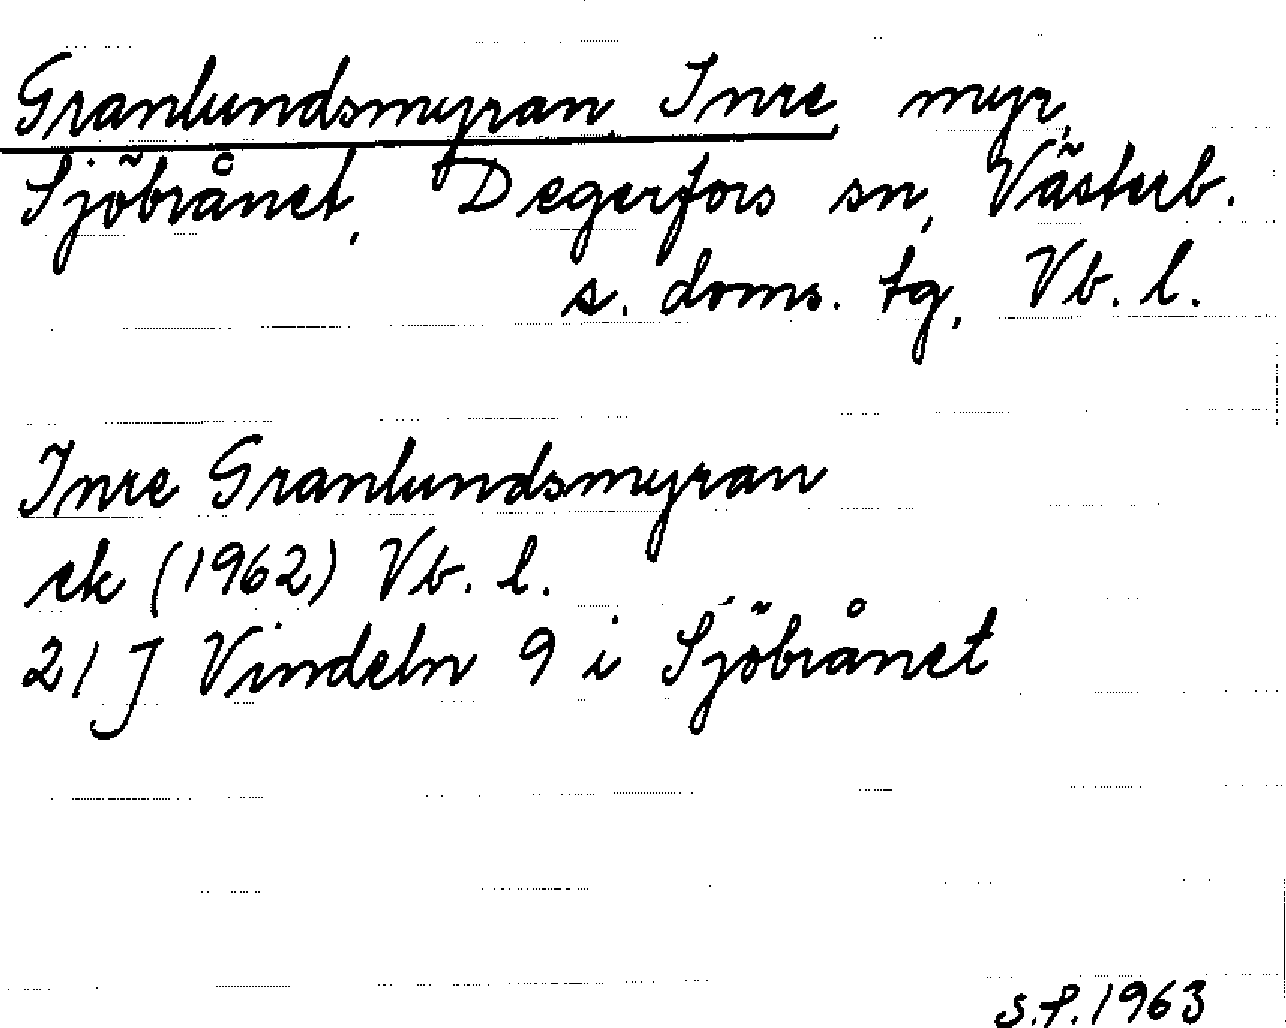 Granlundsmyran, Inre, myr,
Sjöbrånet, Degerfors sn, Västerb.
s. doms. tg, Vb. l.
Inre Granlundsmyran
ek (1962) Vb. l.
21 J Vindeln 9 i Sjöbrånet
S.P. 1963